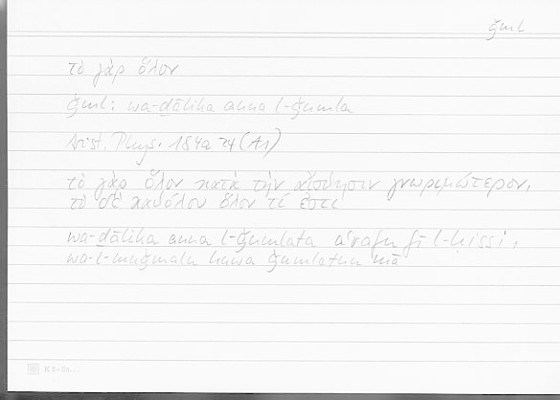 ǧml
τὸ γὰρ ὅλον
ǧml: wa-ḏālika anna l-ǧumla
Arist. Phys. 184a24 (A1)
τὸ γὰρ ὅλον κατὰ τὴν αἴσθησιν γνωριμώτερον,
τὸ δὲ καθόλου ὅλον τί ἐστι
wa-ḏālika anna l-ǧumlata aʿrafu fī l-ḥissi,
wa-l-muǧmalu huwa ǧumlatun mā